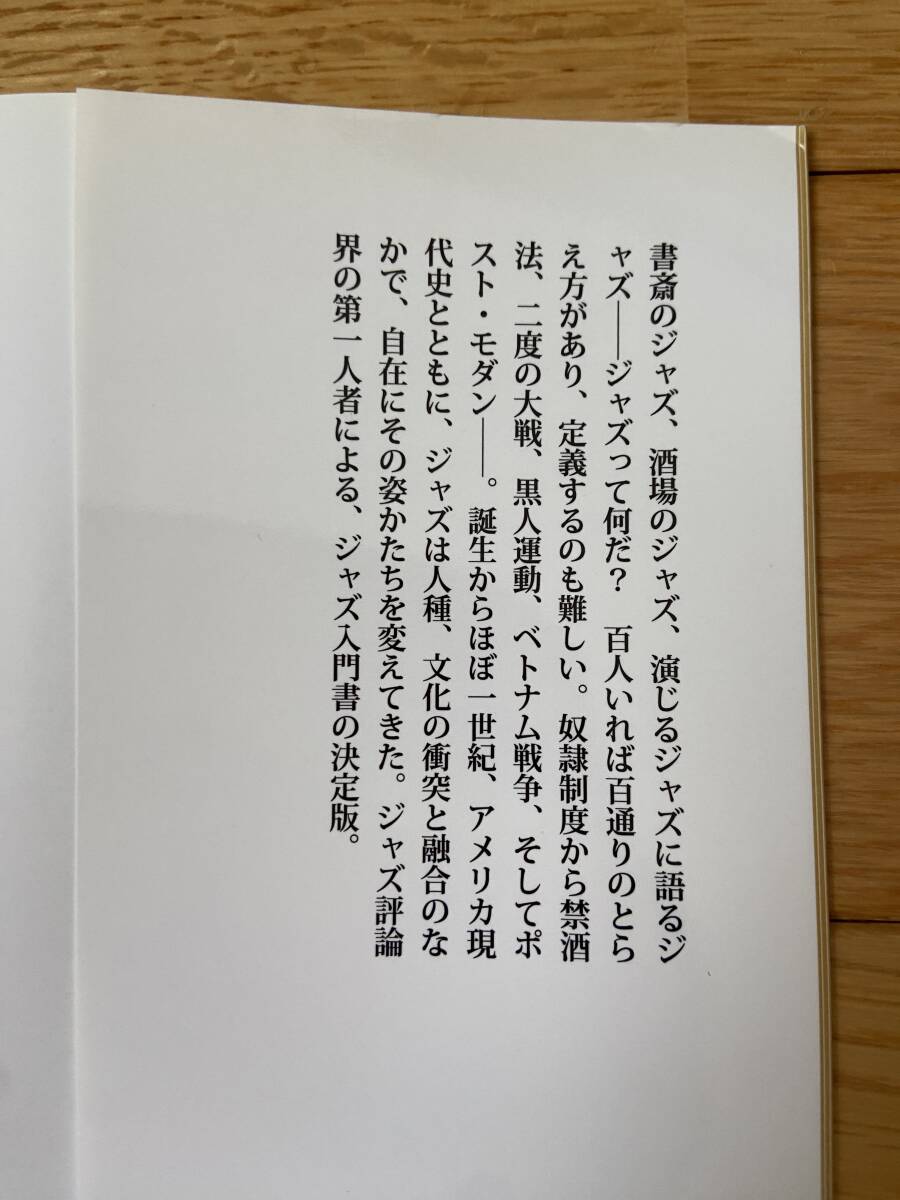 書斎のジャズ、酒場のジャズ、演じるジャズに語るジ
ャズ――ジャズって何だ？　百人いれば百通りのとら
え方があり、定義するのも難しい。奴隷制度から禁酒
法、二度の大戦、黒人運動、ベトナム戦争、そしてポ
スト・モダン――。誕生からほぼ一世紀、アメリカ現
代史とともに、ジャズは人種、文化の衝突と融合のな
かで、自在にその姿かたちを変えてきた。ジャズ評論
界の第一人者による、ジャズ入門書の決定版。